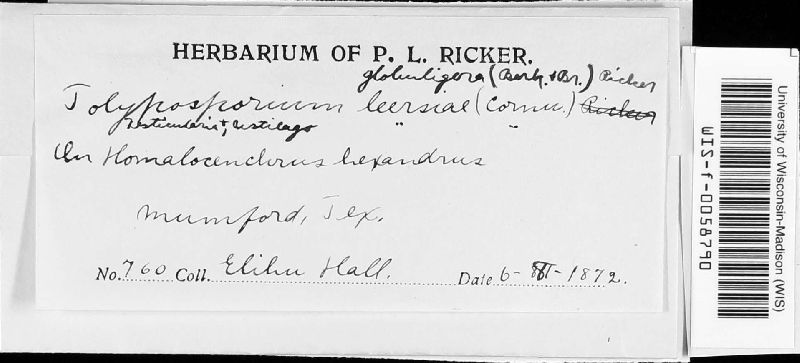 HERBARIUM OF P. L. RICKER.
globuligera (Berk. & Br.) Ricker
Tolyposporium leersiae (Cornu.) Ricker
Ustilago " "
On Homalocenchrus hexandrus
Mumford, Tex.
No. 760 Coll. Elihu Hall. Date 6- -1872.
University of Wisconsin-Madison (WIS)
WIS-f-0058790